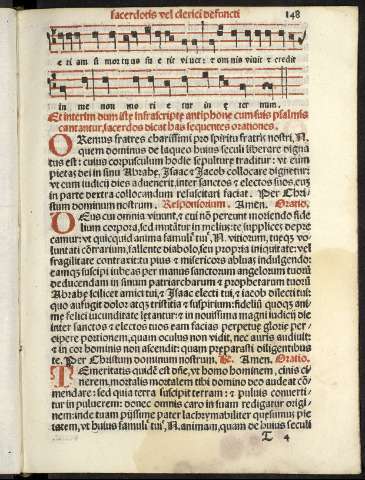 sacerdotis vel clerici defuncti 148
e ti am si mortuus fu e rit vi uet: & om nis qui vivit & credit
in me non mo ri e tur in ę ter num.
Et interim dum istę infrascriptę antiphonę cum suis psalmis
cantantur, sacerdos dicat has sequentes orationes.
Oremus fratres charissimi pro spiritu fratris nostri, N.
quem dominus de laqueo huius seculi liberare digna
tus est: cuius corpusculum hodie sepulturę traditur: vt eum
pietas dei in sinu Abrahę, Isaac & Iacob collocare dignetur:
vt cum iudicij dies aduenerit, inter sanctos & electos suos, eum
in parte dextra collocandum resuscitari faciat. Per Chri-
stum dominum nostrum. Responsorium. Amen. Oratio.
Deus cui omnia viuunt, & cui nō pereunt moriendo fidē
lium corpora, sed mutātur in melius: te supplices depre
camur: vt quicquid anima famuli tui, N. vitiorum, tuęq; vo-
luntati cōtrarium, fallente diabolo, seu propria iniquitate: vel
fragilitate contraxit: tu pius & misericors abluas indulgendo:
eamq; suscipi iubeas per manus sanctorum angelorum tuorū
deducendam in sinum patriarcharum & prophetarum tuorū
Abrahę scilicet amici tui, & Isaac electi tui, & iacob dilecti tui:
quo aufugit dolor atq; tristitia & suspirium: fideliū quoq; ani-
mę felici iucunditate lętantur: & in nouissima magni iudicij die
inter sanctos & electos tuos eam facias perpetuę glorię per-
cipere portionem, quam oculus non vidit, nec auris audiuit:
& in cor hominis non ascendit: quam pręparasti diligentibus
te. Per Christum dominum nostrum. R. Amen. Oratio.
Temeritatis quidē est dn̄e, vt homo hominem, cinis ci
nerem, mortalis mortalem tibi domino deo audeat cō-
mendare: sed quia terra suscipit terram: & puluis conuerti-
tur in puluerem: donec omnis caro in suam redigatur origi-
nem: inde tuam pijssime pater lachrymabiliter quęsumus pie
tatem, vt huius famuli tui, N. animam, quam de huius seculi
T 4